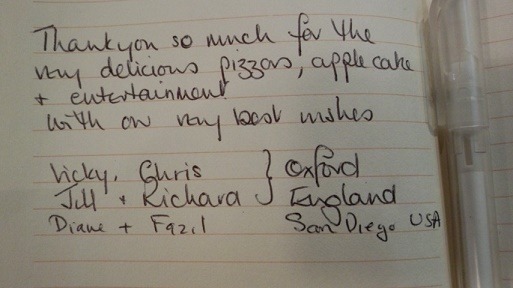 Thankyou so much for the
very delicious pizzas, apple cake
+ entertainment
With our very best wishes
Vicky, Chris } Oxford
Jill + Richard } England
Diane + Fazil San Diego USA